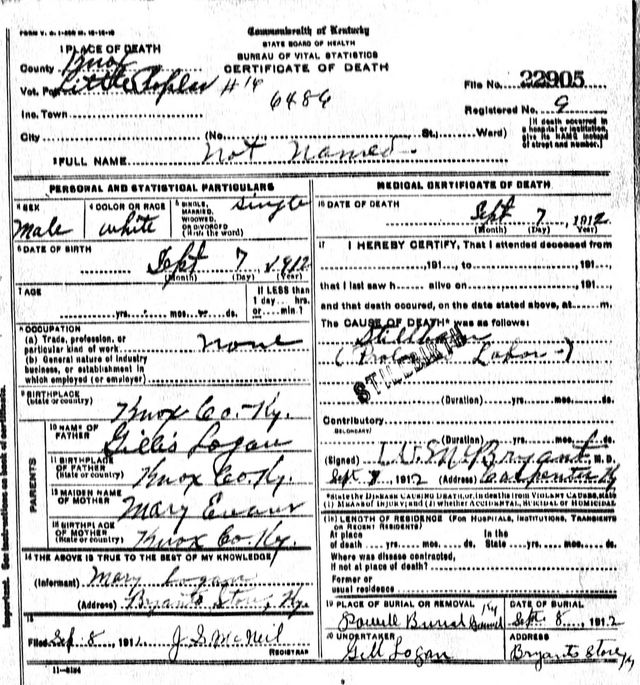 FORM V. S. 1-
Commonwealth of Kentucky
STATE BOARD OF HEALTH
BUREAU OF VITAL STATISTICS
CERTIFICATE OF DEATH
1 PLACE OF DEATH
County Knox
Vot. Pct Little Poplar #14
6486
Inc. Town
City (No. St.; Ward)
File No. 22905
Registered No. 9
[If death occurred in a hospital or institution, give its NAME instead of street and number.]
2 FULL NAME Not Named.
PERSONAL AND STATISTICAL PARTICULARS
3 SEX
Male
4 COLOR OR RACE
White
5 SINGLE, MARRIED, WIDOWED, OR DIVORCED (Write the word)
Single
6 DATE OF BIRTH
Sept 7 1912
(Month) (Day) (Year)
7 AGE
yrs. mos. ds.
If LESS than 1 day hrs. or min.?
8 OCCUPATION
(a) Trade, profession, or particular kind of work
None
(b) General nature of industry business, or establishment in which employed (or employer)
9 BIRTHPLACE (State or country)
Knox Co. Ky.
PARENTS
10 NAME OF FATHER
Gillis Logan
11 BIRTHPLACE OF FATHER (State or country)
Knox Co. Ky.
12 MAIDEN NAME OF MOTHER
Mary Evans
13 BIRTHPLACE OF MOTHER (State or country)
Knox Co. Ky.
14 THE ABOVE IS TRUE TO THE BEST OF MY KNOWLEDGE
(Informant) Mary Logan
(Address) Bryants Store, Ky.
15
Filed Sep 8, 1912 J. S. McNeil
REGISTRAR
11-6184
MEDICAL CERTIFICATE OF DEATH
16 DATE OF DEATH
Sept 7, 1912
(Month) (Day) (Year)
17 I HEREBY CERTIFY, That I attended deceased from
191 , to 191 ,
that I last saw h alive on , 191 ,
and that death occured, on the date stated above, at m.
The CAUSE OF DEATH* was as follows:
Stillborn
Labor-)
STILLBIRTH
(Duration) yrs. mos. ds.
Contributory
SECONDARY
(Duration) yrs. mos. ds.
(Signed) McBryant, M. D.
Sept 8, 1912 (Address) Carpenter Ky
*State the DISEASE CAUSING DEATH, or, in deaths from VIOLENT CAUSES, state (1) MEANS of INJURY; and (2) whether ACCIDENTAL, SUICIDAL or HOMICIDAL
18 LENGTH OF RESIDENCE (FOR HOSPITALS, INSTITUTIONS, TRANSIENTS OR RECENT RESIDENTS)
At place of death yrs. mos. ds. In the State yrs. mos. ds.
Where was disease contracted, if not at place of death?
Former or usual residence
19 PLACE OF BURIAL OR REMOVAL
Powell Burial Ground Ky
DATE OF BURIAL
Sept. 8, 1912
20 UNDERTAKER
Gill Logan
Bryants Store Ky
Important. See instructions on back of certificate.